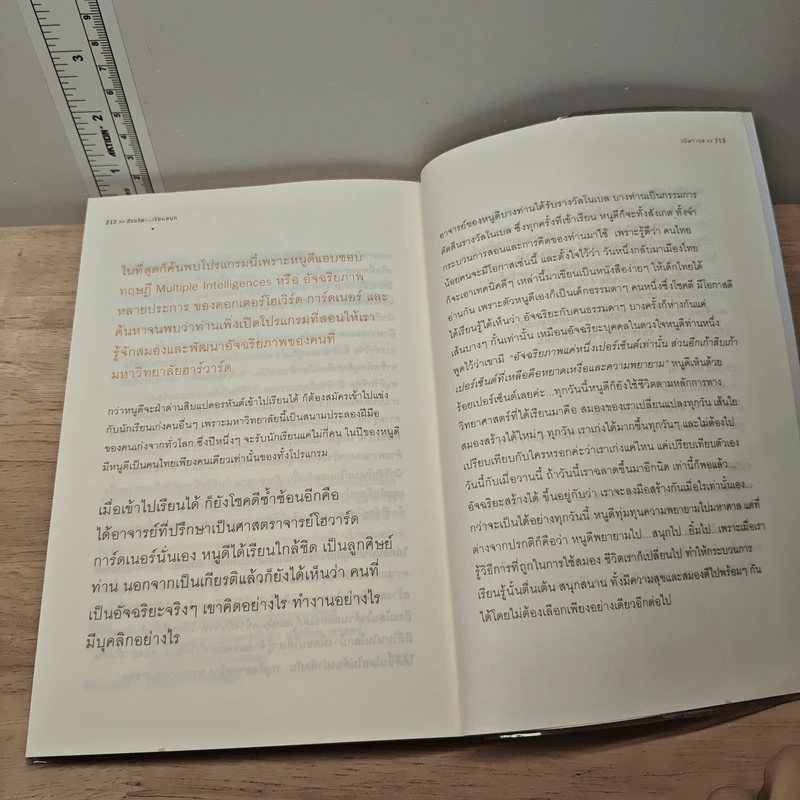 3
2
1
AKTION
212 >> อัจฉริยะ...เรียนสนุก
ในที่สุดก็ค้นพบโปรแกรมนี้เพราะหนูดีแอบชอบ
ทฤษฎี Multiple Intelligences หรือ อัจฉริยภาพ
หลายประการ ของดอกเตอร์โฮเวิร์ด การ์ดเนอร์ และ
ค้นหาจนพบว่าท่านเพิ่งเปิดโปรแกรมที่สอนให้เรา
รู้จักสมองและพัฒนาอัจฉริยภาพของคนที่
มหาวิทยาลัยฮาร์วาร์ด
กว่าหนูดีจะฝ่าด่านสิบแปดอรหันต์เข้าไปเรียนได้ ก็ต้องสมัครเข้าไปแข่ง
กับนักเรียนเก่งคนอื่นๆ เพราะมหาวิทยาลัยนี้เป็นสนามประลองฝีมือ
ของคนเก่งจากทั่วโลก ซึ่งปีหนึ่งๆ จะรับนักเรียนแค่ไม่กี่คน ในปีของหนูดี
มีหนูดีเป็นคนไทยเพียงคนเดียวเท่านั้นของทั้งโปรแกรม
เมื่อเข้าไปเรียนได้ ก็ยังโชคดีซ้ำซ้อนอีกคือ
ได้อาจารย์ที่ปรึกษาเป็นศาสตราจารย์โฮวาร์ด
การ์ดเนอร์นั่นเอง หนูดีได้เรียนใกล้ชิด เป็นลูกศิษย์
ท่าน นอกจากเป็นเกียรติแล้วก็ยังได้เห็นว่า คนที่
เป็นอัจฉริยะจริงๆ เขาคิดอย่างไร ทำงานอย่างไร
มีบุคลิกอย่างไร
วนิษา เรซ >> 213
อาจารย์ของหนูดีบางท่านได้รับรางวัลโนเบล บางท่านเป็นกรรมการ
ตัดสินรางวัลโนเบล ซึ่งทุกครั้งที่เข้าเรียน หนูดีก็จะทั้งสังเกต ทั้งจำ
กระบวนการสอนและการคิดของท่านมาใช้ เพราะรู้ดีว่า คนไทย
น้อยคนจะมีโอกาสเช่นนี้ และตั้งใจไว้ว่า วันหนึ่งกลับมาเมืองไทย
ก็จะเอาเทคนิคดีๆ เหล่านี้มาเขียนเป็นหนังสือง่ายๆ ให้เด็กไทยได้
อ่านกัน เพราะตัวหนูดีเองก็เป็นเด็กธรรมดาๆ คนหนึ่งซึ่งโชคดี มีโอกาสดี
ได้เรียนรู้ได้เห็นว่า อัจฉริยะกับคนธรรมดาๆ บางครั้งก็ห่างกันแค่
เส้นบางๆ กันเท่านั้น เหมือนอัจฉริยะบุคคลในดวงใจหนูดีท่านหนึ่ง
พูดไว้ว่าเขามี “อัจฉริยภาพแค่หนึ่งเปอร์เซ็นต์เท่านั้น ส่วนอีกเก้าสิบเก้า
เปอร์เซ็นต์ที่เหลือคือหยาดเหงื่อและความพยายาม” หนูดีเห็นด้วย
ร้อยเปอร์เซ็นต์เลยค่ะ...ทุกวันนี้หนูดีก็ยังใช้ชีวิตตามหลักการทาง
วิทยาศาสตร์ที่ได้เรียนมาคือ สมองของเราเปลี่ยนแปลงทุกวัน เส้นใย
สมองสร้างได้ใหม่ๆ ทุกวัน เราเก่งได้มากขึ้นทุกวันๆ และไม่ต้องไป
เปรียบเทียบกับใครหรอกค่ะว่าเราเก่งแค่ไหน แค่เปรียบเทียบตัวเอง
วันนี้กับเมื่อวานนี้ ถ้าวันนี้เราฉลาดขึ้นมาอีกนิด เท่านี้ก็พอแล้ว...
อัจฉริยะสร้างได้ ขึ้นอยู่กับว่า เราจะลงมือสร้างกันเมื่อไรเท่านั้นเอง...
กว่าจะเป็นได้อย่างทุกวันนี้ หนูดีทุ่มทุนความพยายามไปมหาศาล แต่ที่
ต่างจากปรกติก็คือว่า หนูดีพยายามไป....สนุกไป...ยิ้มไป...เพราะเมื่อเรา
รู้วิธีการที่ถูกในการใช้สมอง ชีวิตเราก็เปลี่ยนไป ทำให้กระบวนการ
เรียนรู้นั้นตื่นเต้น สนุกสนาน ทั้งมีความสุขและสมองดีไปพร้อมๆ กัน
ได้โดยไม่ต้องเลือกเพียงอย่างเดียวอีกต่อไป